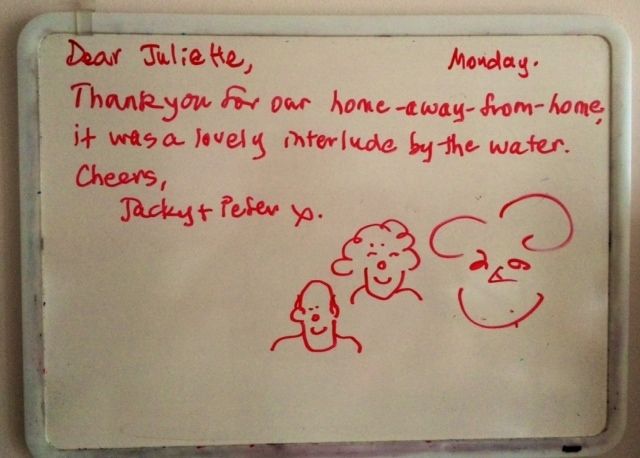 Dear Juliette, Monday.
Thank you for our home-away-from-home,
it was a lovely interlude by the water.
Cheers,
Jacky + Peter x.